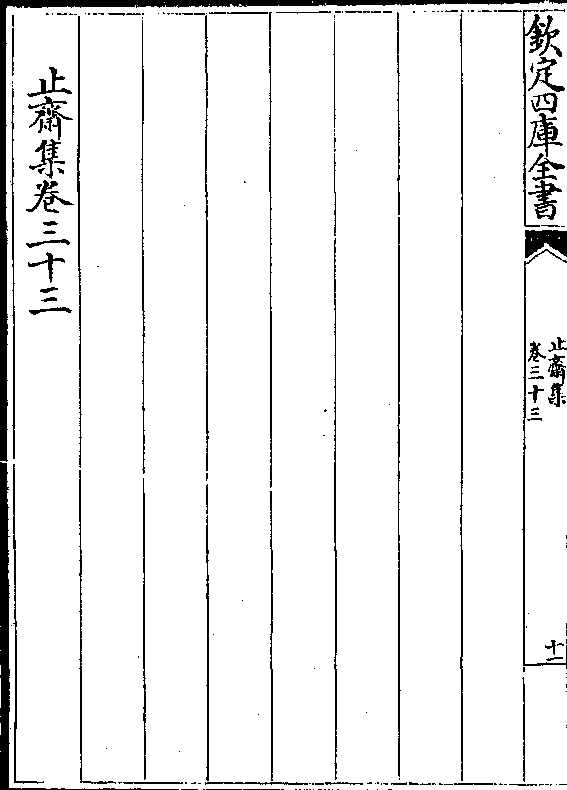 欽定四庫全書
止齋集
卷三十三
十一
止齋集卷三十三